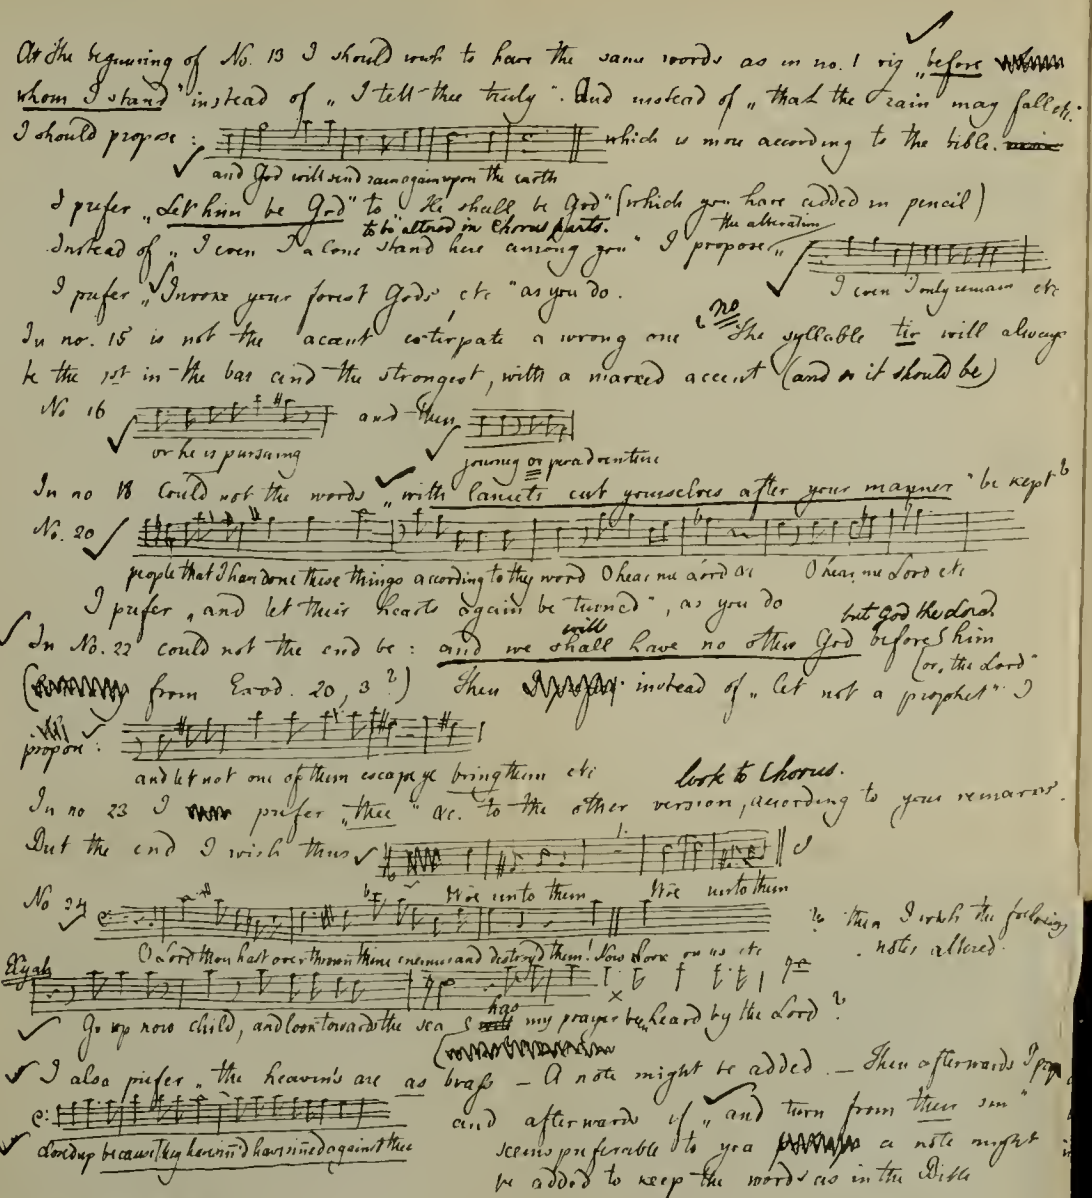 At the beginning of No. 13 I should wish to have the same words as in no. 1 viz „before
whom I stand" instead of „I tell thee truly". And instead of „that the rain may fall etc:
I should propose: which is more according to the bible.
and God will send rain again upon the earth
I prefer „Let him be God" to „He shall be God" (which you have added in pencil)
to be altered in Chorus parts. the alteration
Instead of „I even I alone stand here among you" I propose „
I even I only remain etc
I prefer „Invoke your forest Gods etc" as you do.
In no. 15 is not the accent extirpate a wrong one? no The syllable tir will always
be the 1st in the bar and the strongest, with a marked accent (and so it should be)
No 16 and then
or he is pursuing journey or peradventure
In no 18 could not the words „with lancets cut yourselves after your manner" be kept?
No. 20
people that I have done these things according to thy word O hear me Lord etc O hear me Lord etc
I prefer „and let their hearts again be turned", as you do
will but God the Lord.
In No. 22 could not the end be: and we shall have no other God before him
(or, the Lord"
( from Exod. 20, 3?) Then instead of „let not a prophet" I
propose:
and let not one of them escape ye bring them etc look to Chorus.
In no 23 I prefer „thee" &c. to the other version, according to your remarks.
But the end I wish thus
Woe unto them Woe unto them
No 34 ? then I wish the following
notes altered.
O Lord thou hast overthrown thine enemies and destroyed them! Now look on us etc
Elijah
has
Go up now child, and look towards the sea my prayer been heard by the Lord?
I also prefer „the heavens are as brass — A note might be added. — Then afterwards I
and afterwards if „and turn from their sin"
Lord up because they have sinned against thee
seems preferable to you a note might
be added to keep the words as in the Bible